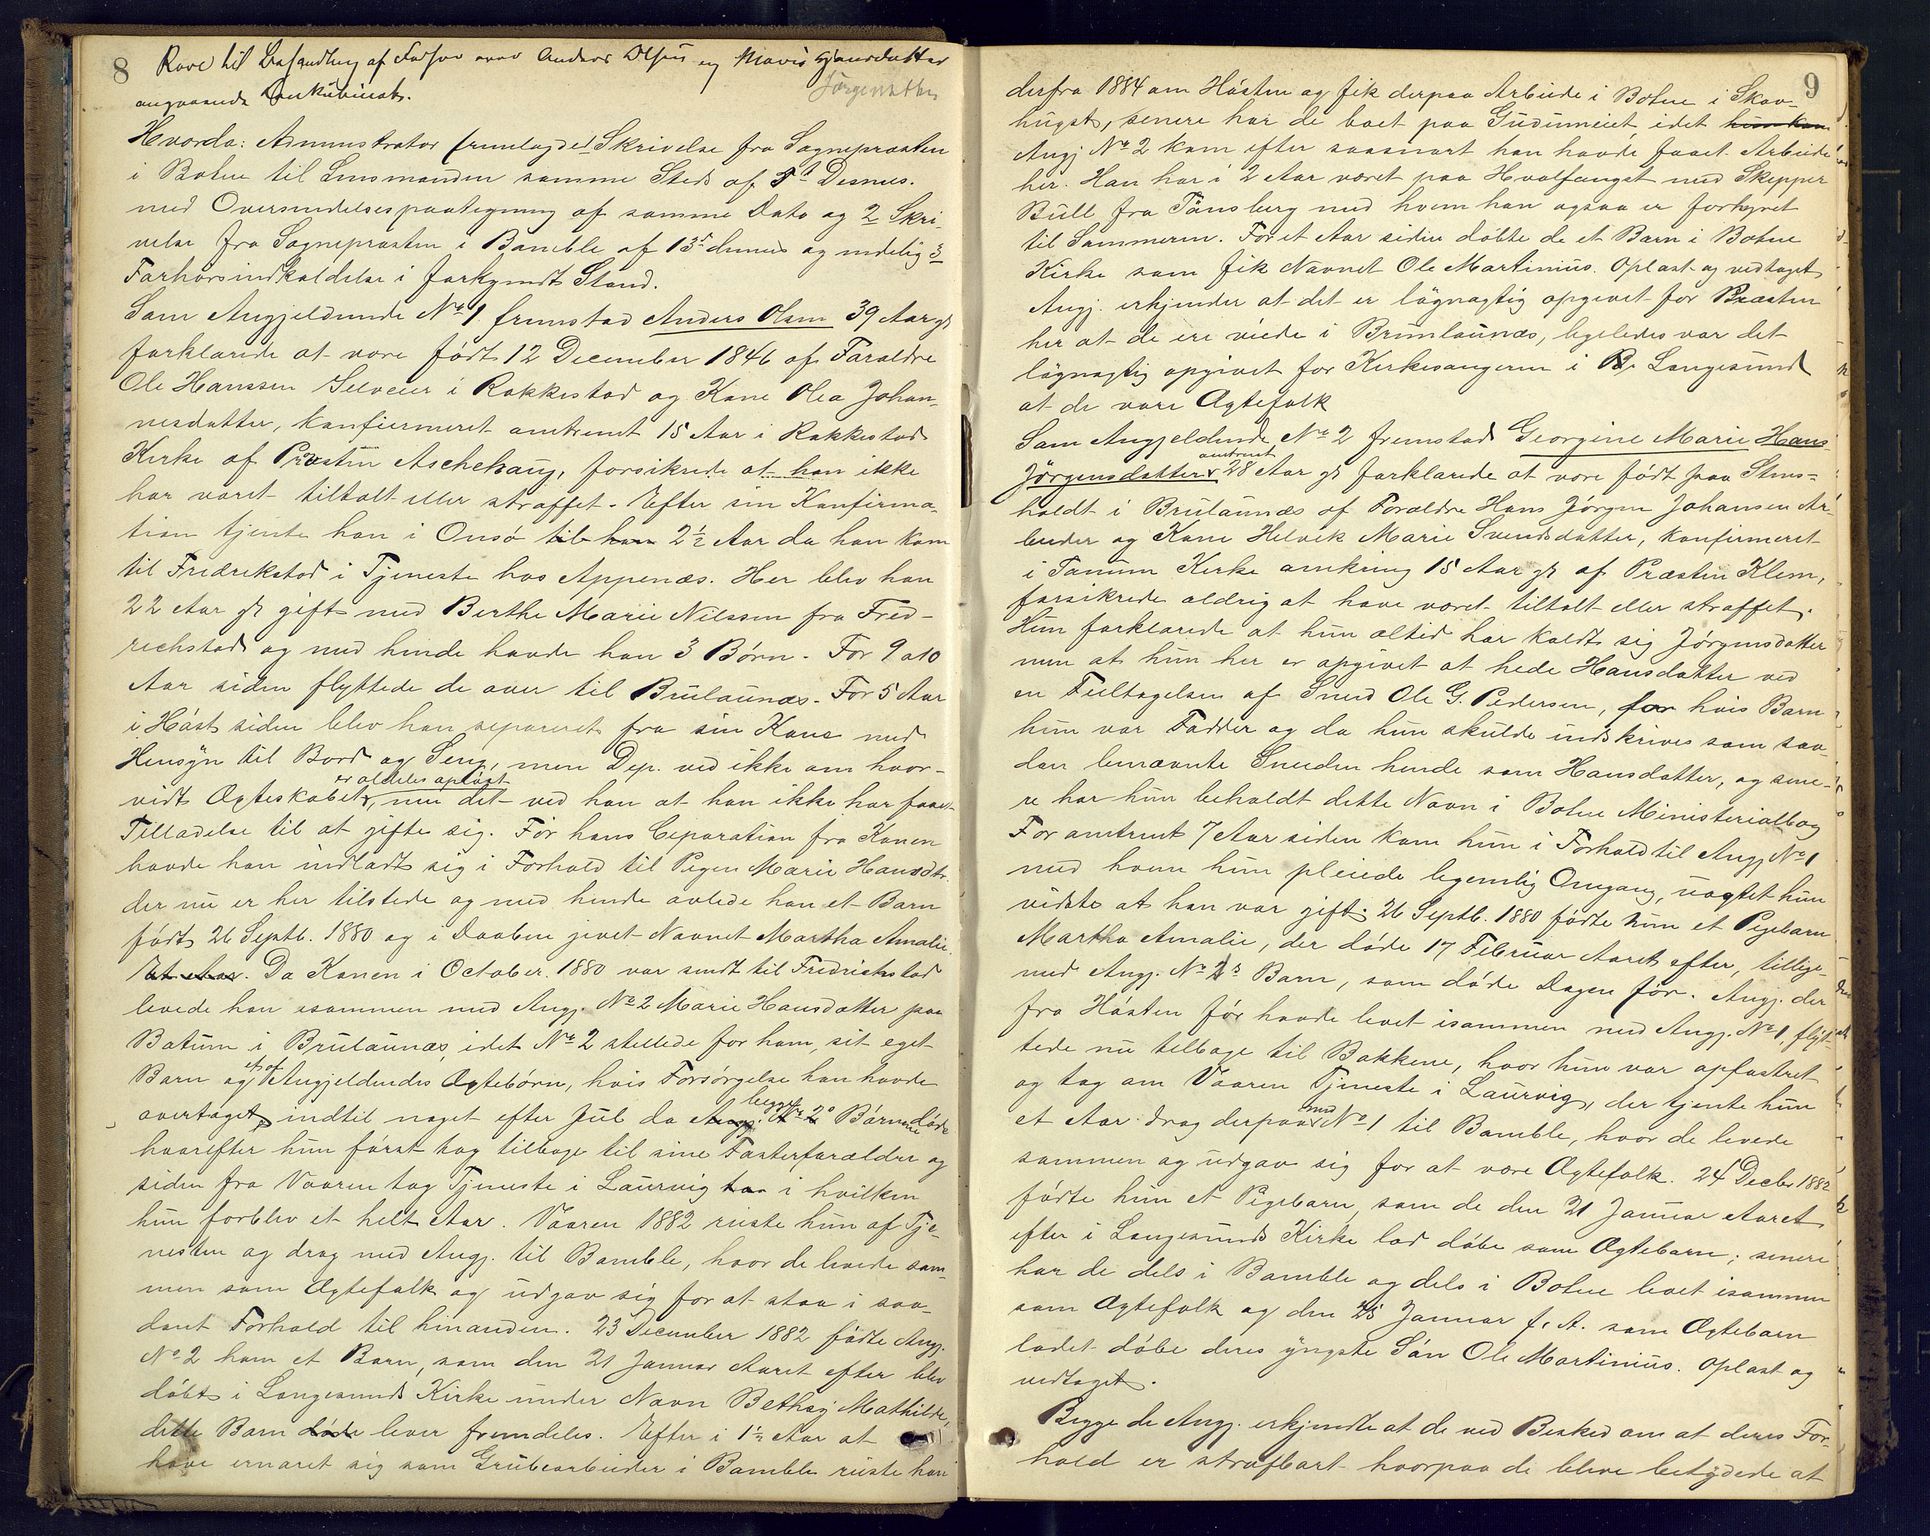 8
Rave til Behandling af Forhør over Anders Olsen og Marie Hansdatter
Jørgensdatter
angaaende Konkubinat.
Hvorda: Administrator fremlagde 1 Skrivelse fra Sognepræsten
i Botne til Lensmanden samme Steds af Ds.
med Oversendelsespaategning af samme Dato og 2 Skri-
velse fra Sognepræsten i Bamble af 13de dennes og endelig 3
Forhørsindkaldelse i forkyndt Stand.
Som Angjeldende No 1 fremstod Anders Olsen 39 Aar gl
forklarede at være født 12 December 1846 af Forældre
Ole Hanssen i Rakkestad og Kone Olea Johan-
nesdatter, konfirmeret omtrent 15 Aar i Rakkestad
Kirke af Præsten Aschehaug, forsikrede at han ikke
har været tiltalt eller straffet. Efter sin Konfirma-
tion tjente han i Onsø til han 2½ Aar da han kom
til Fredrikstad i Tjeneste hos Appenæs. Her blev han
22 Aar gl gift med Berthe Marie Nilssen fra Fred-
richstad og med hende havde han 3 Børn. For 9 a 10
Aar siden flyttede de over til Brulaunæs. For 5 Aar
i Høst siden blev han separeret fra sin Kone med
Hensyn til Bord og Seng, men Dep. ved ikke om hvor-
er aldeles opløst
vidt Ægteskabet, men det ved han at han ikke har faaet
Tilladelse til at gifte sig. Før hans Ceparation fra Konen
havde han indladt sig i Forhold til Pigen Marie Hansdtr.
der nu er her tilstede og med hende avlede han et Barn
født 26 Septb. 1880 og i Daaben givet Navnet Martha Amalie.
Et Aar. Da Konen i October 1880 var sendt til Fredrichstad
levede han sammen med Angj. No 2 Marie Hansdatter paa
Batum i Brulaunæs, idet No 2 stellede for ham, sit eget
et af
Barn og Angjeldendes Ægtebørn, hvis Forsørgelse han havde
begge
overtaget, indtil noget efter Jul da Angj. No 2s Børnene døde
hvorefter hun først tog tilbage til sine Fosterforældre og
siden fra Vaaren tog Tjeneste i Laurvig han i hvilken
hun forblev et helt Aar. Vaaren 1882 reiste hun af Tje-
nesten og drog med Angj. til Bamble, hvor de levede sam-
men som Ægtefolk og udgav sig for at staa i saa-
dant Forhold til hinanden. 23 December 1882 fødte Angj.
No 2 ham et Barn, som den 21 Januar Aaret efter blev
døbt i Langesunds Kirke under Navn Bethay Mathilde,
dette Barn døde lever fremdeles. Efter i 1½ Aar at
have ernæret sig som Grubearbeider i Bamble reiste han
9
derfra 1884 om Høsten og fik derpaa Arbeide i Botne i Skov-
hugst, senere har de boet paa Gudumeiet, idet hun kom
Angj No 2 kom efter saasnart han havde faaet Arbeide
her. Han har i 2 Aar været paa Hvalfangst med Skipper
Bull fra Tønsberg med hvem han ogsaa er forhyret
til Sommeren. For et Aar siden døbte de et Barn i Botne
Kirke som fik Navnet Ole Martinius. Oplæst og vedtaget
Angj. erkjender at det er løgnagtig opgivet for Præsten
her at de ere viede i Brunlaunæs, ligeledes var det
løgnagtig opgivet for Kirkesangeren i Br Langesund
at de vare Ægtefolk
Som Angjeldende No 2 fremstod Georgine Marie Hans
omtrent
Jørgensdatter 28 Aar gl forklarede at være født paa Stens-
holdt i Brulaunæs af Forældre Hans Jørgen Johansen Ar-
beider og Kone Helvik Marie Svendsdatter, konfirmeret
i Tanum Kirke omkring 15 Aar gl af Præsten Klem,
forsikrede aldrig at have været tiltalt eller straffet.
Hun forklarede at hun altid har kaldt sig Jørgensdatter
men at hun her er opgivet at hede Hansdatter ved
en Feiltagelse af Smed Ole G. Pedersen, for hvis Barn
hun var Fadder og da hun skulde indskrives som saa-
dan benævnte Smeden hende som Hansdatter, og sene-
re har hun beholdt dette Navn i Botne Ministerialbog
For omtrent 7 Aar siden kom hun i Forhold til Angj No 1
med hvem hun pleiede legemlig Omgang, uagtet hun
vidste at han var gift. 26 Septb. 1880 fødte hun et Pigebarn
Martha Amalie, der døde 17 Februar Aaret efter, tillige-
med Angj. No 1s Barn, som døde Dagen før. Angj. der
fra Høsten før havde levet isammen med Angj. No 1, flyt-
tede nu tilbage til Bakkene, hvor hun var opfostret
og tog om Vaaren Tjeneste i Laurvig, der tjente hun
med
et Aar drog derpaa No 1 til Bamble, hvor de levede
sammen og udgav sig for at være Ægtefolk. 24 Decbr 1882
fødte hun et Pigebarn, som de den 21 Januar Aaret
efter i Langesunds Kirke lod døbe som Ægtebarn; senere
har de dels i Bamble og dels i Botne levet isammen
som Ægtefolk og den 25 Januar f. A. som Ægtebarn
ladet døbe deres yngste Søn Ole Martinius. Oplæst og
vedtaget.
Begge de Angj. erkjendte at de ved Besked om at deres For-
hold er strafbart hvorpaa de bleve betydede at